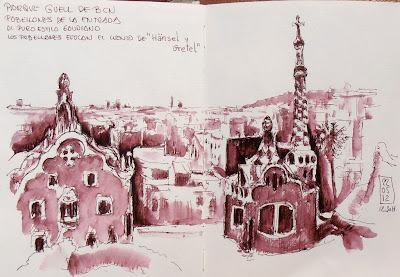 PARQUE GUELL DE BCN
PABELLONES DE LA ENTRADA
DE PURO ESTILO GAUDIANO
LOS PABELLONES EVOCAN EL CUENTO DE "Hänsel y
Gretel"
05
12
12:30H